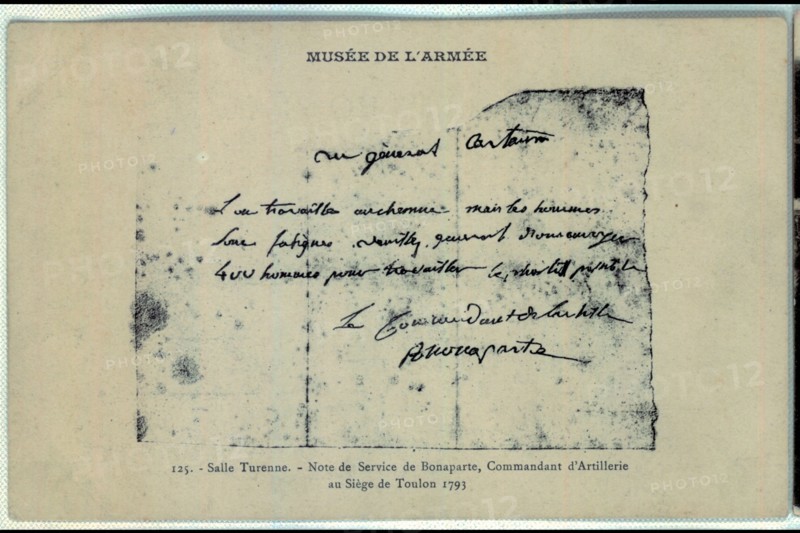 MUSÉE DE L'ARMÉE
au général Cartaux
L'on travaille au chemin mais les hommes
sont fatigués. veuillez, général m'envoyer
400 hommes pour travailler
Le Commandant de l'artille
Buonaparte
125. - Salle Turenne. - Note de Service de Bonaparte, Commandant d'Artillerie
au Siège de Toulon 1793
PHOTO12